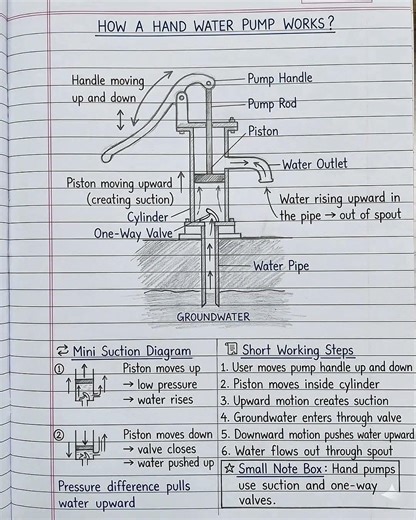 HOW A HAND WATER PUMP WORKS?
Handle moving
up and down
Pump Handle
Pump Rod
Piston
Water Outlet
Piston moving upward
(creating suction)
Cylinder
One-Way Valve
Water rising upward in
the pipe → out of spout
Water Pipe
GROUNDWATER
Mini Suction Diagram
① Piston moves up
→ low pressure
→ water rises
② Piston moves down
→ valve closes
→ water pushed up
Pressure difference pulls
water upward
Short Working Steps
1. User moves pump handle up and down
2. Piston moves inside cylinder
3. Upward motion creates suction
4. Groundwater enters through valve
5. Downward motion pushes water upward
6. Water flows out through spout
☆ Small Note Box: Hand pumps
use suction and one-way
valves.